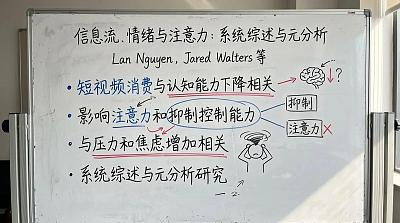 信息流、情绪与注意力：系统综述与元分析
Lan Nguyen, Jared Walters 等
• 短视频消费与认知能力下降相关
↓?
• 影响注意力和抑制控制能力
抑制
注意力 ×
• 与压力和焦虑增加相关
• 系统综述与元分析研究